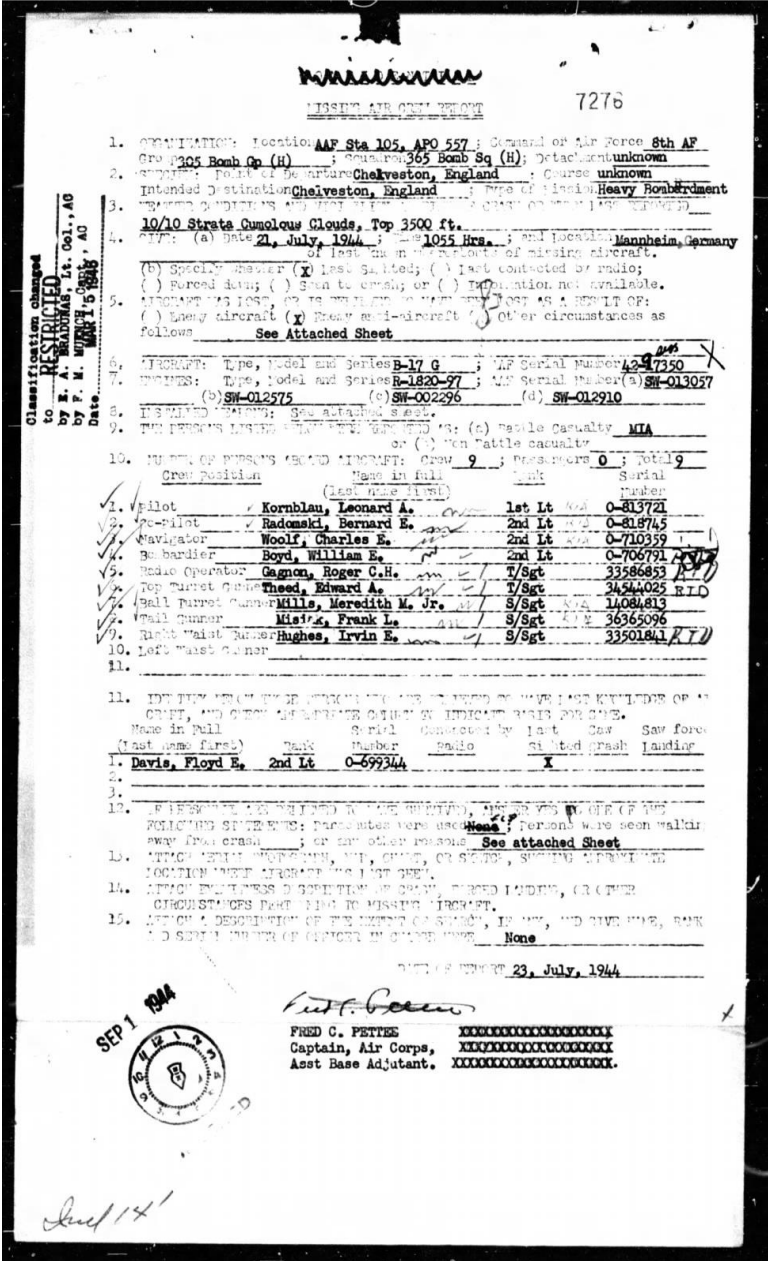 MISSING AIR CREW REPORT
7276
1. ORGANIZATION: Location AAF Sta 105, APO 557 ; Command or Air Force 8th AF
Group 305 Bomb Gp (H) ; Squadron 365 Bomb Sq (H); Detachment unknown
2. SPECIFY: Point of Departure Chelveston, England ; Course unknown
Intended Destination Chelveston, England ; Type of Mission Heavy Bombardment
3. WEATHER CONDITIONS AND VISIBILITY CRASH OR WHEN LAST REPORTED
10/10 Strata Cumolous Clouds, Top 3500 ft.
4. GIVE: (a) Date 21, July, 1944 ; Time 1055 Hrs. ; and Location Mannheim, Germany
of last known whereabouts of missing aircraft.
(b) Specify whether (x) Last Sighted; ( ) Last contacted by radio;
( ) Forced down; ( ) Seen to crash; or ( ) Information not available.
5. AIRCRAFT WAS LOST, OR IS BELIEVED TO HAVE BEEN LOST AS A RESULT OF:
( ) Enemy aircraft (x) Enemy anti-aircraft ( ) Other circumstances as
follows See Attached Sheet
6. AIRCRAFT: Type, Model and Series B-17 G ; AAF Serial Number 42-97350
7. ENGINES: Type, Model and Series R-1820-97 ; AAF Serial Number (a) SW-013057
(b) SW-012575 (c) SW-002296 (d) SW-012910
8. INSTALLED WEAPONS: See attached sheet.
9. THE PERSONS LISTED BELOW WERE REPORTED AS: (a) Battle Casualty MIA
or (b) Non Battle casualty
10. NUMBER OF PERSONS ABOARD AIRCRAFT: Crew 9 ; Passengers 0 ; Total 9
Crew Position Name in full Rank Serial
(last name first) Number
1. Pilot Kornblau, Leonard A. 1st Lt 0-813721
2. Co-Pilot Radomski, Bernard E. 2nd Lt 0-818745
3. Navigator Woolf, Charles E. 2nd Lt 0-710359
4. Bombardier Boyd, William E. 2nd Lt 0-706791
5. Radio Operator Gagnon, Roger C.H. T/Sgt 33586853 RTD
6. Top Turret Gunner Theed, Edward A. T/Sgt 34544025 RTD
7. Ball Turret Gunner Mills, Meredith M. Jr. S/Sgt 14084813
8. Tail Gunner Frank L. S/Sgt 36365096
9. Right Waist Gunner Hughes, Irvin E. S/Sgt 33501841 RTD
10. Left Waist Gunner
11.
11. IDENTIFY BELOW THOSE PERSONS WHO ARE BELIEVED TO HAVE LAST KNOWLEDGE OF AI
CRAFT, AND CHECK APPROPRIATE COLUMN TO INDICATE BASIS FOR SAME.
Name in Full Serial Contacted by Last Saw Saw force
(Last name first) Rank Number Radio Sighted Crash Landing
1. Davis, Floyd E. 2nd Lt 0-699344 X
2.
3.
12. IF PERSONNEL ARE BELIEVED TO HAVE SURVIVED, ANSWER YES TO ONE OF THE
FOLLOWING STATEMENTS: Parachutes were used None ; Persons were seen walkin
away from crash ; or any other reasons See attached Sheet
13. ATTACH AERIAL PHOTOGRAPH, MAP, CHART, OR SKETCH, SHOWING APPROXIMATE
LOCATION WHERE AIRCRAFT WAS LAST SEEN.
14. ATTACH EYEWITNESS DESCRIPTION OF CRASH, FORCED LANDING, OR OTHER
CIRCUMSTANCES PERTAINING TO MISSING AIRCRAFT.
15. ATTACH A DESCRIPTION OF THE EXTENT OF SEARCH, IF ANY, AND GIVE NAME, RANK
AND SERIAL NUMBER OF OFFICER IN CHARGE HERE None
DATE OF REPORT 23, July, 1944
FRED C. PETTEE XXXXXXXXXXXXXXXXXXXX
Captain, Air Corps, XXXXXXXXXXXXXXXXXXXX
Asst Base Adjutant. XXXXXXXXXXXXXXXXXXXXX.
SEP 1 1944
Classification changed
to RESTRICTED
by E. A. BRADUNAS, Lt. Col., AG
by F. M. MUENCH, Capt., AC
Date MAR 15 1946